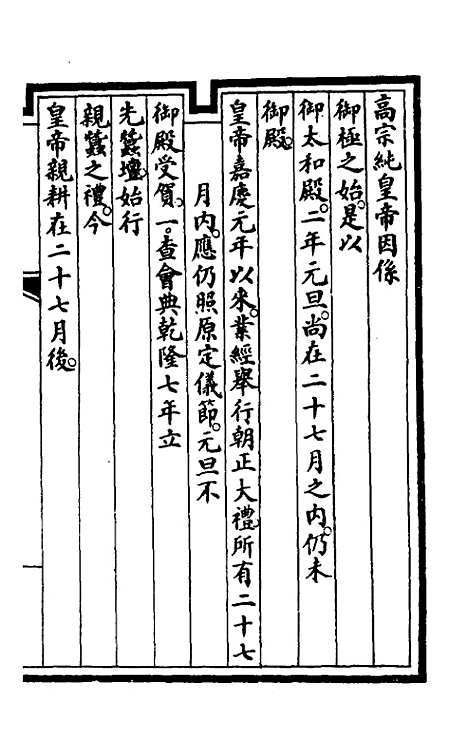 高宗純皇帝因係
御極之始。是以
御太和殿。二年元旦。尚在二十七月之内。仍未
御殿。
皇帝嘉慶元年以來。業經舉行朝正大禮。所有二十七
月内。應仍照原定儀節。元旦不
御殿受賀。一。查會典乾隆七年立
先蠶壇。始行
親蠶之禮。今
皇帝親耕在二十七月後。